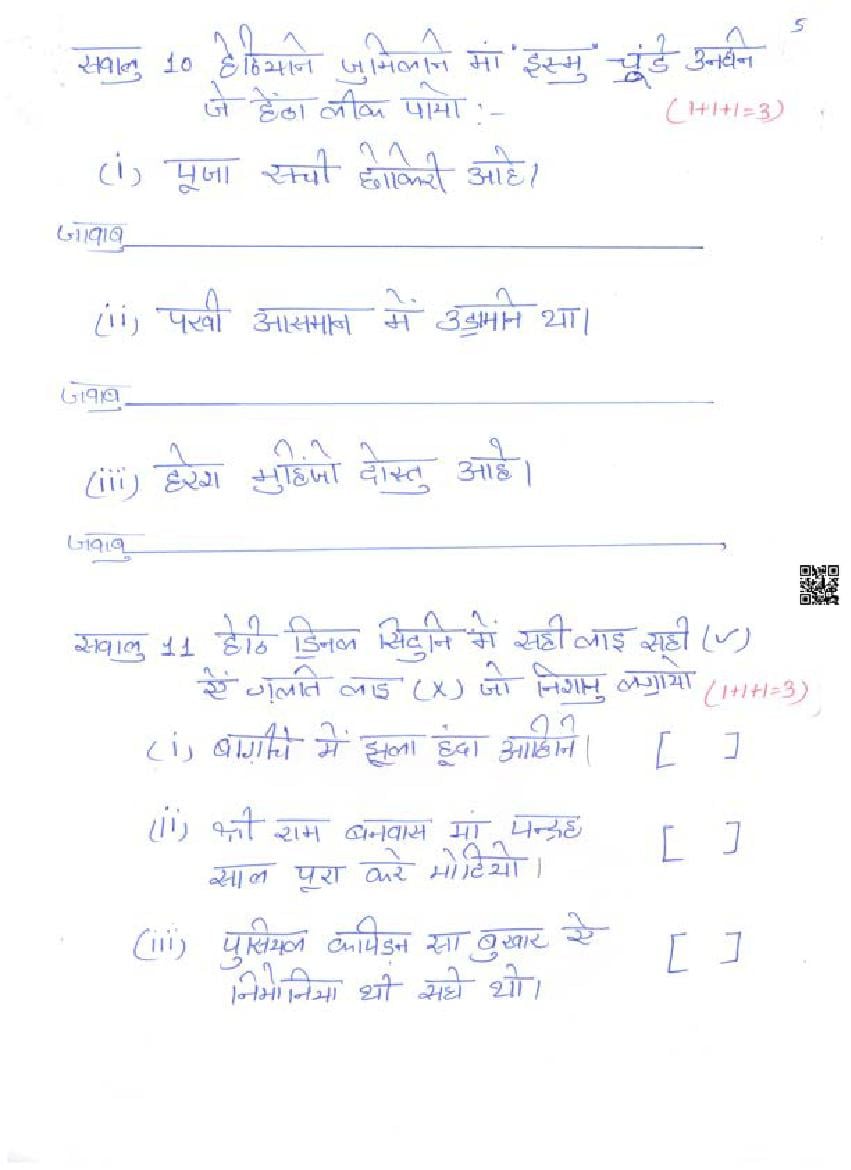 5
सवालु 10 हेठियाने जुमिलाने मां "इस्मु" चूंडे उनहीन
जे हेंठा लीक पायो :-
(1+1+1=3)
(i) पूजा सची छोकिरी आहे।
जवाब
(ii) पखी आसमान में उड्रामनि था।
जवाब
(iii) हरेश मुहिंजो दोस्तु आहे।
जवाबु
सवालु 11 हेठि डिनल सिटुनि में सही लाइ सही (✓)
ऐं ग़लति लाइ (X) जो निशानु लगायो (1+1+1=3)
(i) बाग़ीचे में झूला हूंदा आहिनि। [ ]
(ii) श्री राम बनवास मां पन्द्रह [ ]
साल पूरा करे मोटियो।
(iii) पुसियल कपिड़न सा बुखार ऐ [ ]
निमोनिया थी सघे थो।